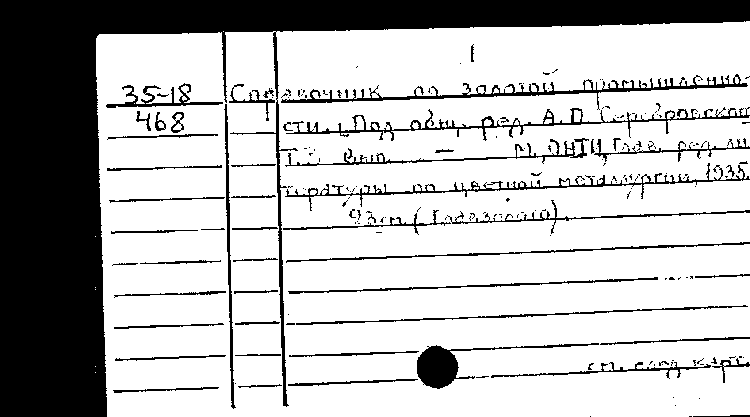 1
35-18 Справочник по золотой промышленно-
468 сти. Под общ. ред. А.П Серебровског
Т. 3 Вып. — М., ОНТИ, Глав. ред. ли
тературы по цветной металлургии, 1935.
23см. (Главзолото).
см. след. карт.